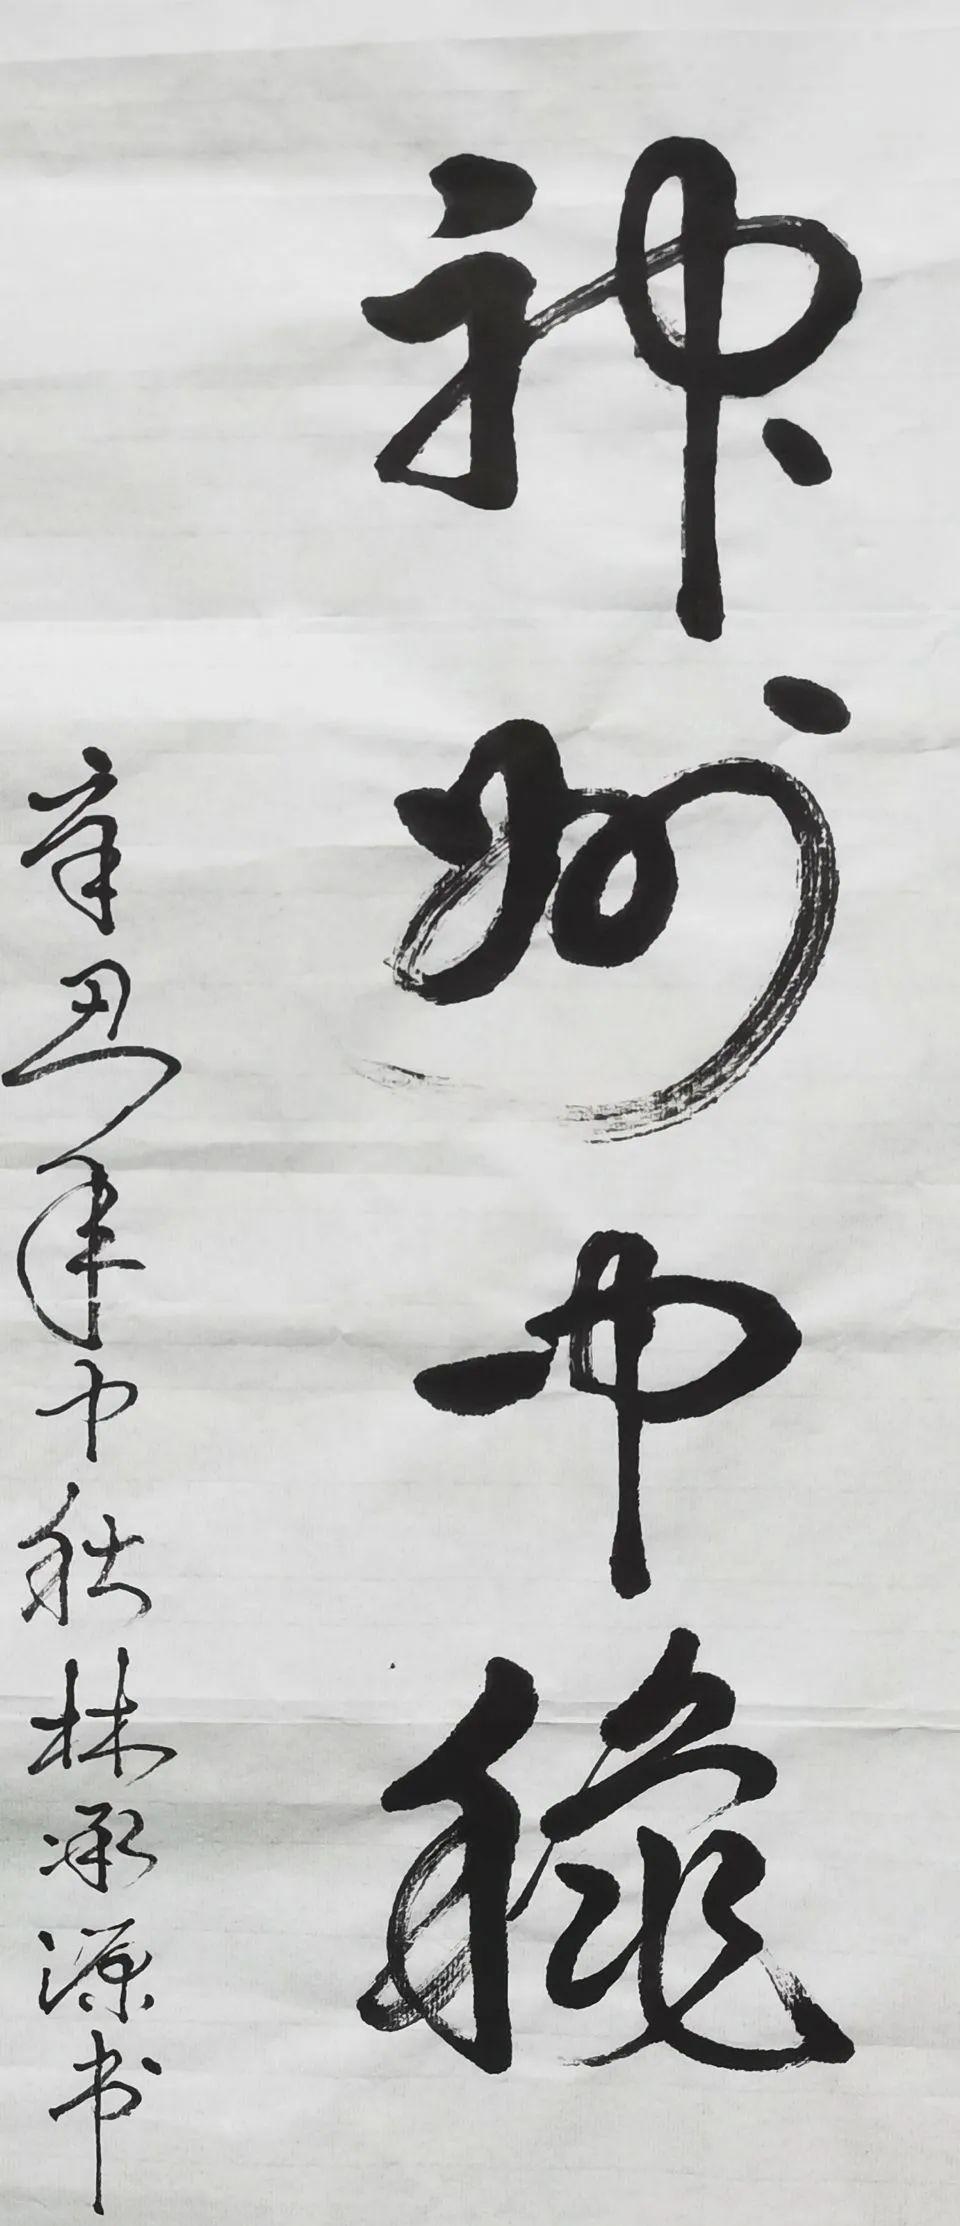 神州中穐
辛丑年中秋林承源书